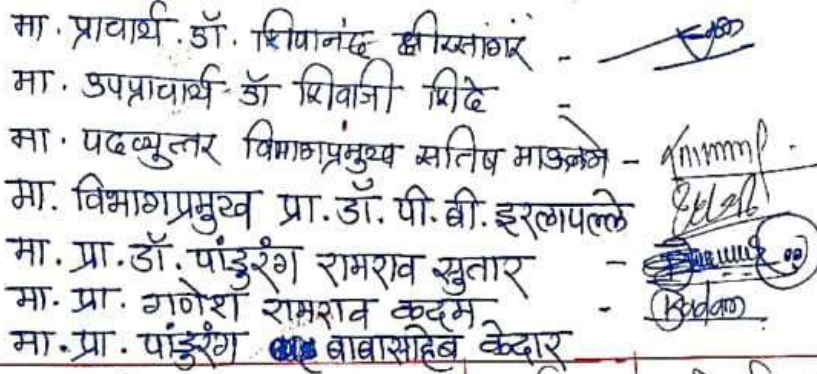 मा. प्राचार्य. डॉ. शिवानंद क्षीरसागर -
मा. उपप्राचार्य डॉ शिवाजी शिंदे -
मा. पदव्युत्तर विभागप्रमुख सतिष -
मा. विभागप्रमुख प्रा.डॉ. पी.बी. इरलापल्ले
मा. प्रा. डॉ. पांडुरंग रामराव सुतार -
मा. प्रा. गणेश रामराव कदम - Kadam
मा. प्रा. पांडुरंग बाबासाहेब केदार